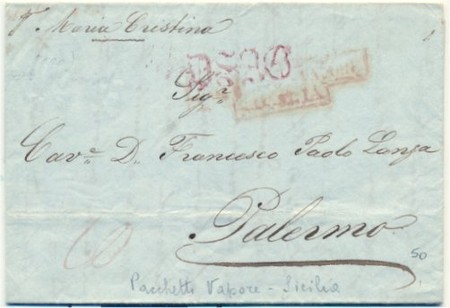 Maria Cristina
Sig.r
Cav.e D. Francesco Paolo Lanza
Palermo
50
Pacchetti Vapore - Sicilia